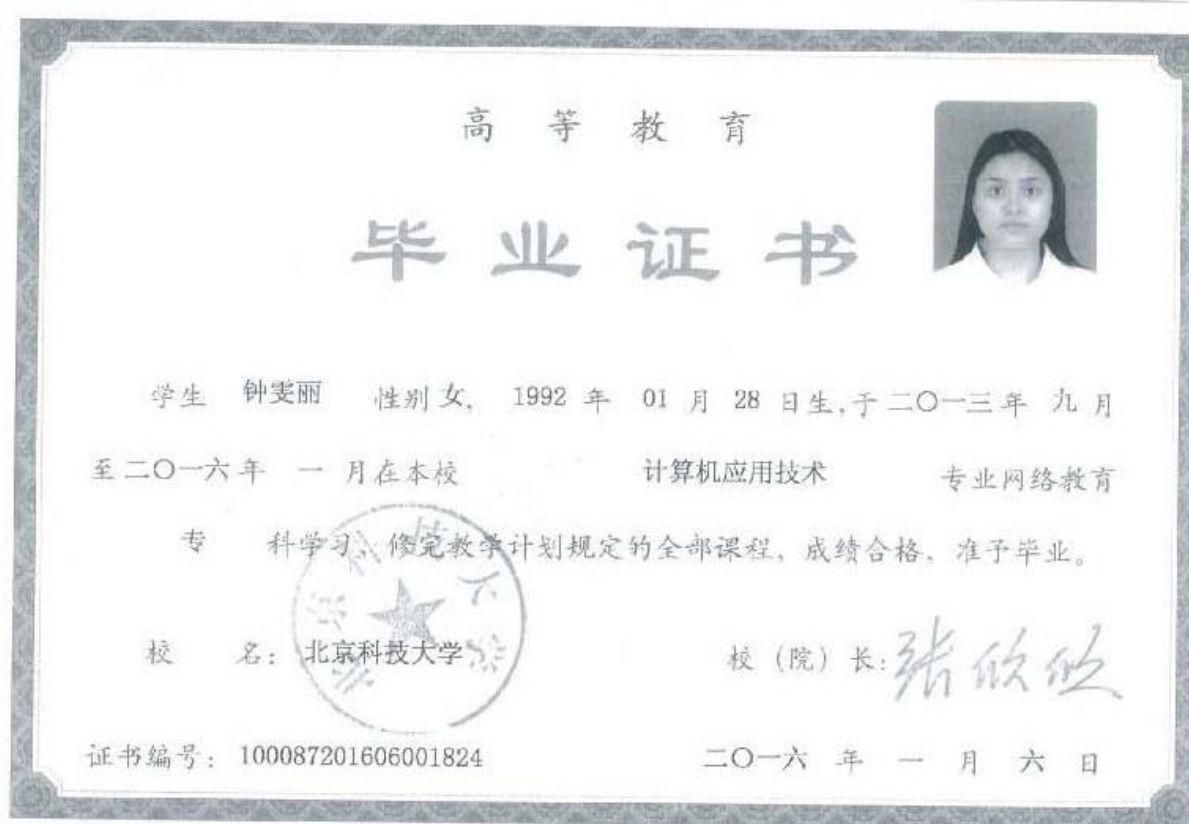 高等教育
毕业证书
学生 钟雯丽 性别 女, 1992 年 01 月 28 日生,于二〇一三年 九月
至二〇一六年 一 月在本校 计算机应用技术 专业网络教育
专 科学习, 修完教学计划规定的全部课程, 成绩合格, 准予毕业。
校 名: 北京科技大学 校 (院) 长: 张欣欣
北京科技大学
证书编号: 100087201606001824 二〇一六 年 一 月 六 日